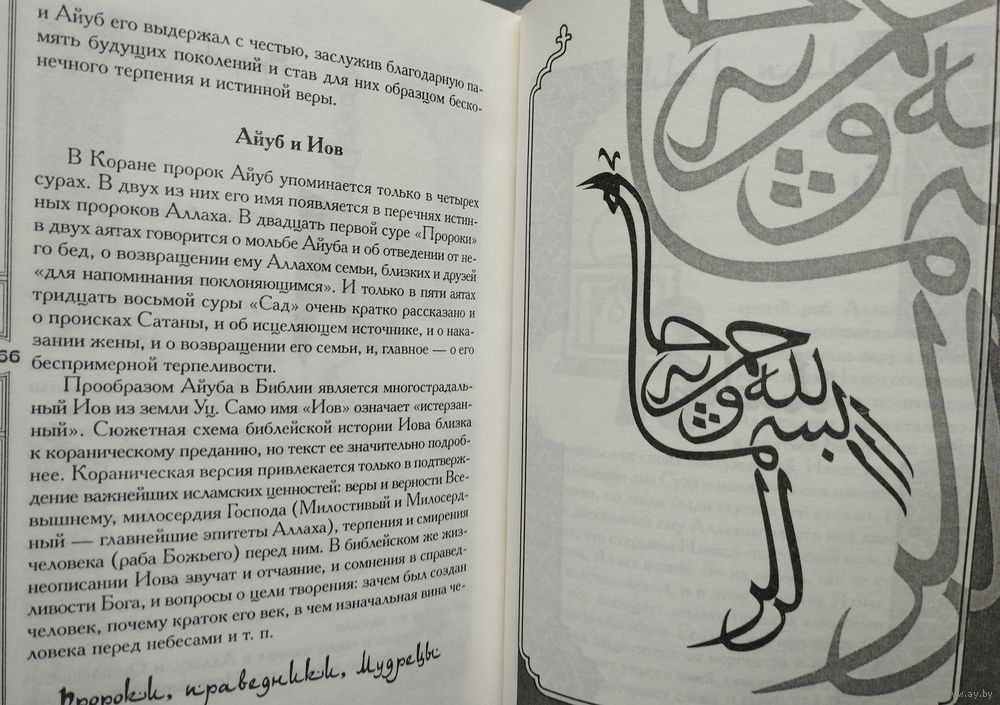 и Айуб его выдержал с честью, заслужив благодарную па-
мять будущих поколений и став для них образцом беско-
нечного терпения и истинной веры.
Айуб и Иов
В Коране пророк Айуб упоминается только в четырех
сурах. В двух из них его имя появляется в перечнях истин-
ных пророков Аллаха. В двадцать первой суре «Пророки»
в двух аятах говорится о мольбе Айуба и об отведении от не-
го бед, о возвращении ему Аллахом семьи, близких и друзей
«для напоминания поклоняющимся». И только в пяти аятах
тридцать восьмой суры «Сад» очень кратко рассказано и
о происках Сатаны, и об исцеляющем источнике, и о нака-
зании жены, и о возвращении его семьи, и, главное — о его
беспримерной терпеливости.
66
Прообразом Айуба в Библии является многострадаль-
ный Иов из земли Уц. Само имя «Иов» означает «истерзан-
ный». Сюжетная схема библейской истории Иова близка
к кораническому преданию, но текст ее значительно подроб-
нее. Кораническая версия привлекается только в подтверж-
дение важнейших исламских ценностей: веры и верности Все-
вышнему, милосердия Господа (Милостивый и Милосерд-
ный — главнейшие эпитеты Аллаха), терпения и смирения
человека (раба Божьего) перед ним. В библейском же жиз-
неописании Иова звучат и отчаяние, и сомнения в справед-
ливости Бога, и вопросы о цели творения: зачем был создан
человек, почему краток его век, в чем изначальная вина че-
ловека перед небесами и т. п.
Пророки, праведники, мудрецы
بسم الله
www.ay.by